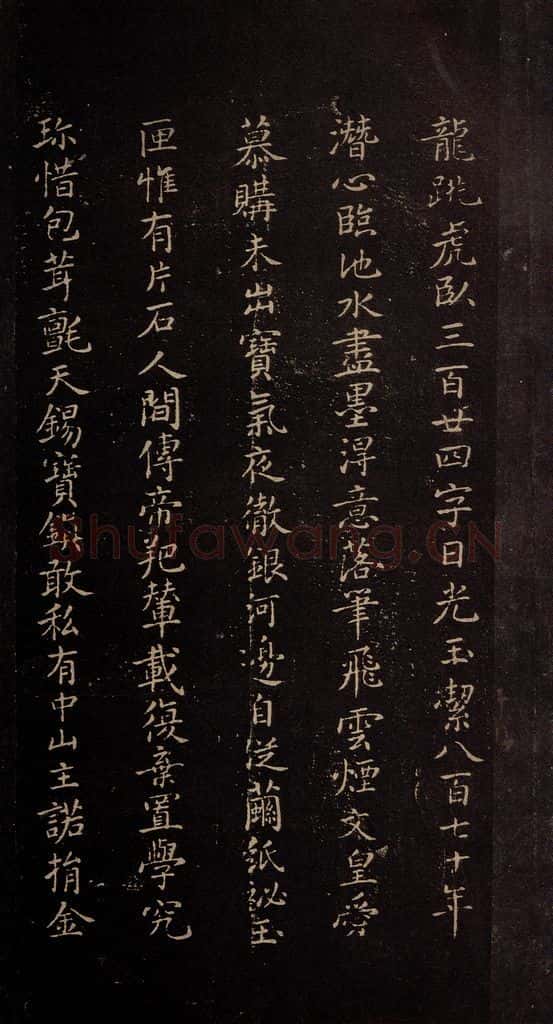 龍跳虎臥三百廿四字日光玉潔八百七十年
潛心臨池水盡墨淂意落筆飛雲煙文皇爵
慕購未出寶氣夜徹銀河邊自從繭紙祕玉
匣惟有片石人間傳帝羓輦載復棄置學究
珎惜包茸氈天錫寶鎮敢私有中山主諾捐金
Shufawang.CN